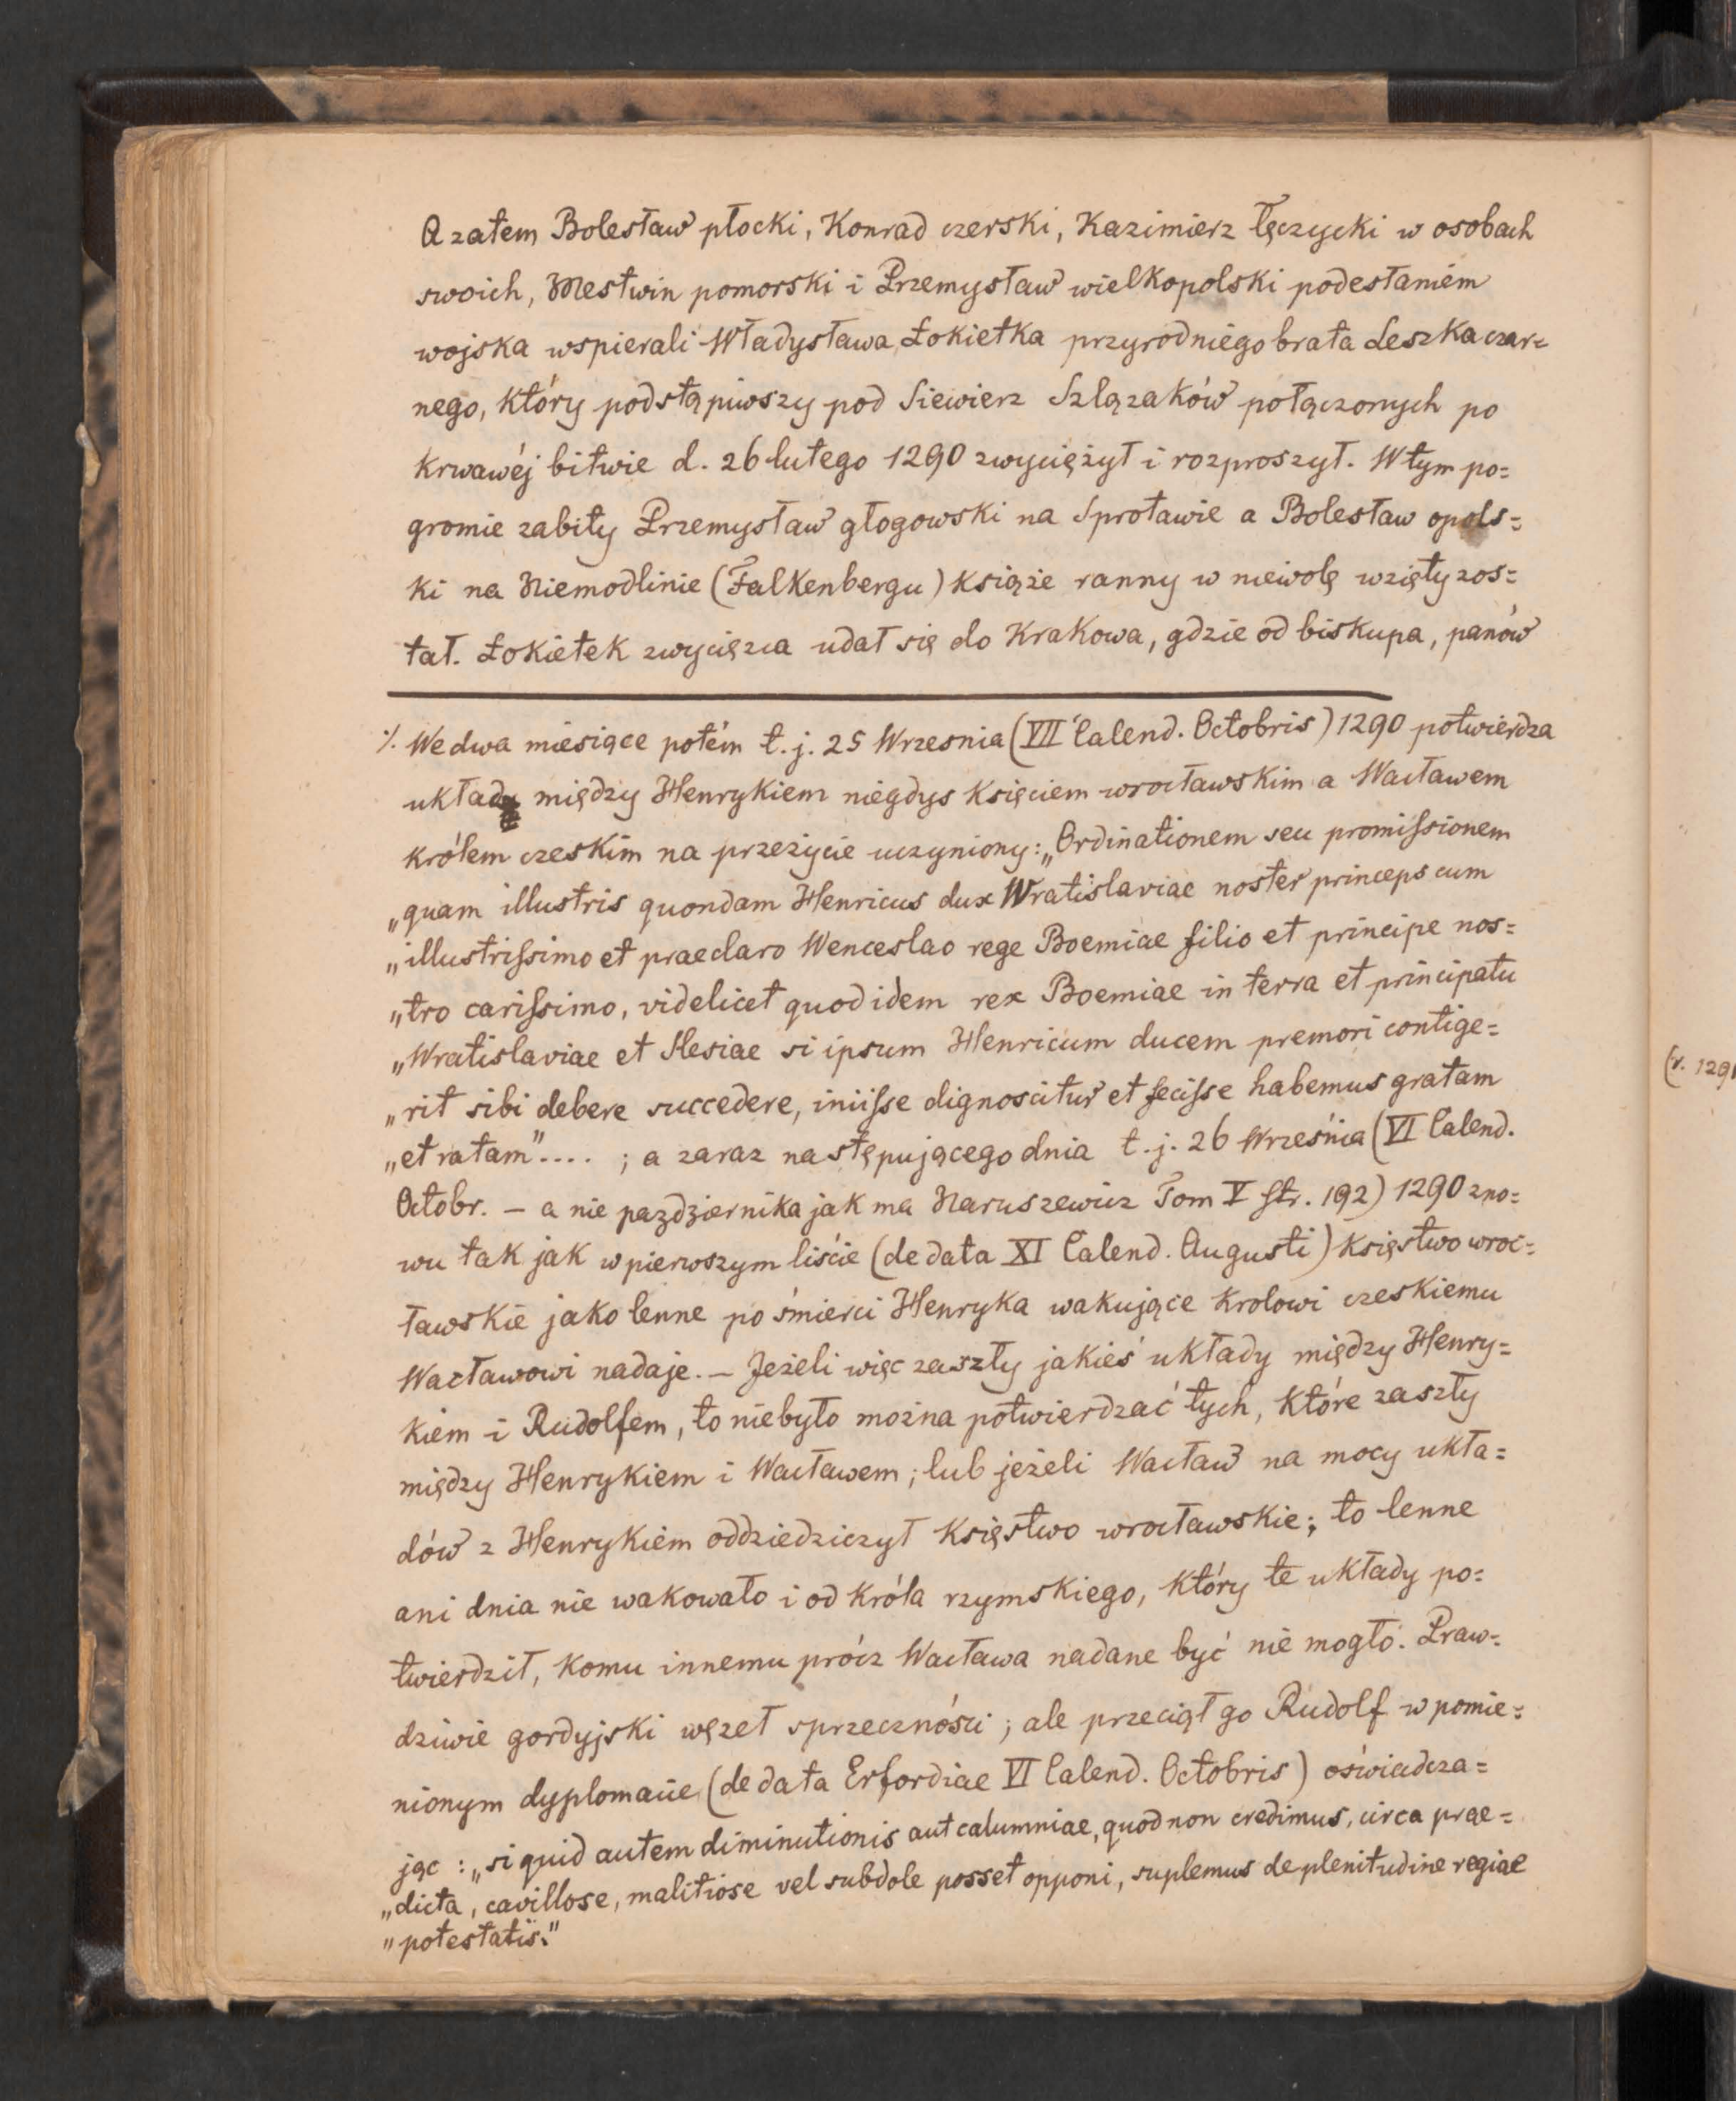 A zatem Bolesław płocki, Konrad czerski, Kazimierz łęczycki w osobach
swoich, Mestwin pomorski i Przemysław wielkopolski podesłaniem
wojska wspierali Władysława Łokietka przyrodniego brata Leszka czar=
nego, który podstąpiwszy pod Siewierz Szlązaków połączonych po
krwawéj bitwie d. 26 lutego 1290 zwyciężył i rozproszył. W tym po=
gromie zabity Przemysław głogowski na Sprotawie a Bolesław opols=
ki na Niemodlinie (Falkenbergu) książe ranny w niewolę wzięty zos=
tał. Łokietek zwycięzca udał się do Krakowa, gdzie od biskupa, panów
⁒ We dwa miesiące potém t.j. 25 Wrzesnia (VII Calend. Octobris) 1290 potwierdza
układy między Henrykiem niegdys księciem wrocławskim a Wacławem
królem czeskim na przeżycie uczyniony: „Ordinationem seu promiſsionem
„quam illustris quondam Henricus dux Wratislaviae noster princeps cum
„illustriſsimo et praeclaro Wenceslao rege Boemiae filio et principe nos=
„tro cariſsimo, videlicet quod idem rex Boemiae in terra et principatu
„Wratislaviae et Slesiae si ipsum Henricum ducem premori contige=
„rit sibi debere succedere, iniiſse dignoscitur et feciſse habemus gratam
„et ratam".... ; a zaraz następującego dnia t.j. 26 Września (VI Calend.
Octobr. – a nie pazdziernika jak ma Naruszewicz Tom V str. 192) 1290 zno=
wu tak jak w pierwszym liście (de data XI Calend. Augusti) księstwo wroc=
ławskie jako lenne po śmierci Henryka wakujące krolowi czeskiemu
Wacławowi nadaje. – Jeżeli więc zaszły jakieś układy między Henry=
kiem i Rudolfem, to niebyło można potwierdzać tych, które zaszły
między Henrykiem i Wacławem; lub jeżeli Wacław na mocy ukła=
dów z Henrykiem oddziedziczył księstwo wrocławskie; to lenne
ani dnia nie wakowało i od króla rzymskiego, który te układy po=
twierdził, komu innemu prócz Wacława nadane być nie mogło. Praw=
dziwie gordyjski węzeł sprzeczności; ale przeciął go Rudolf w pomie=
nionym dyplomacie (de data Erfordiae VI Calend. Octobris) oświadcza=
jąc: „si quid autem diminutionis aut calumniae, quod non credimus, circa prae=
„dicta, cavillose, malitiose vel subdole posset opponi, suplemus de plenitudine regiae
„potestatis."
(r. 1291